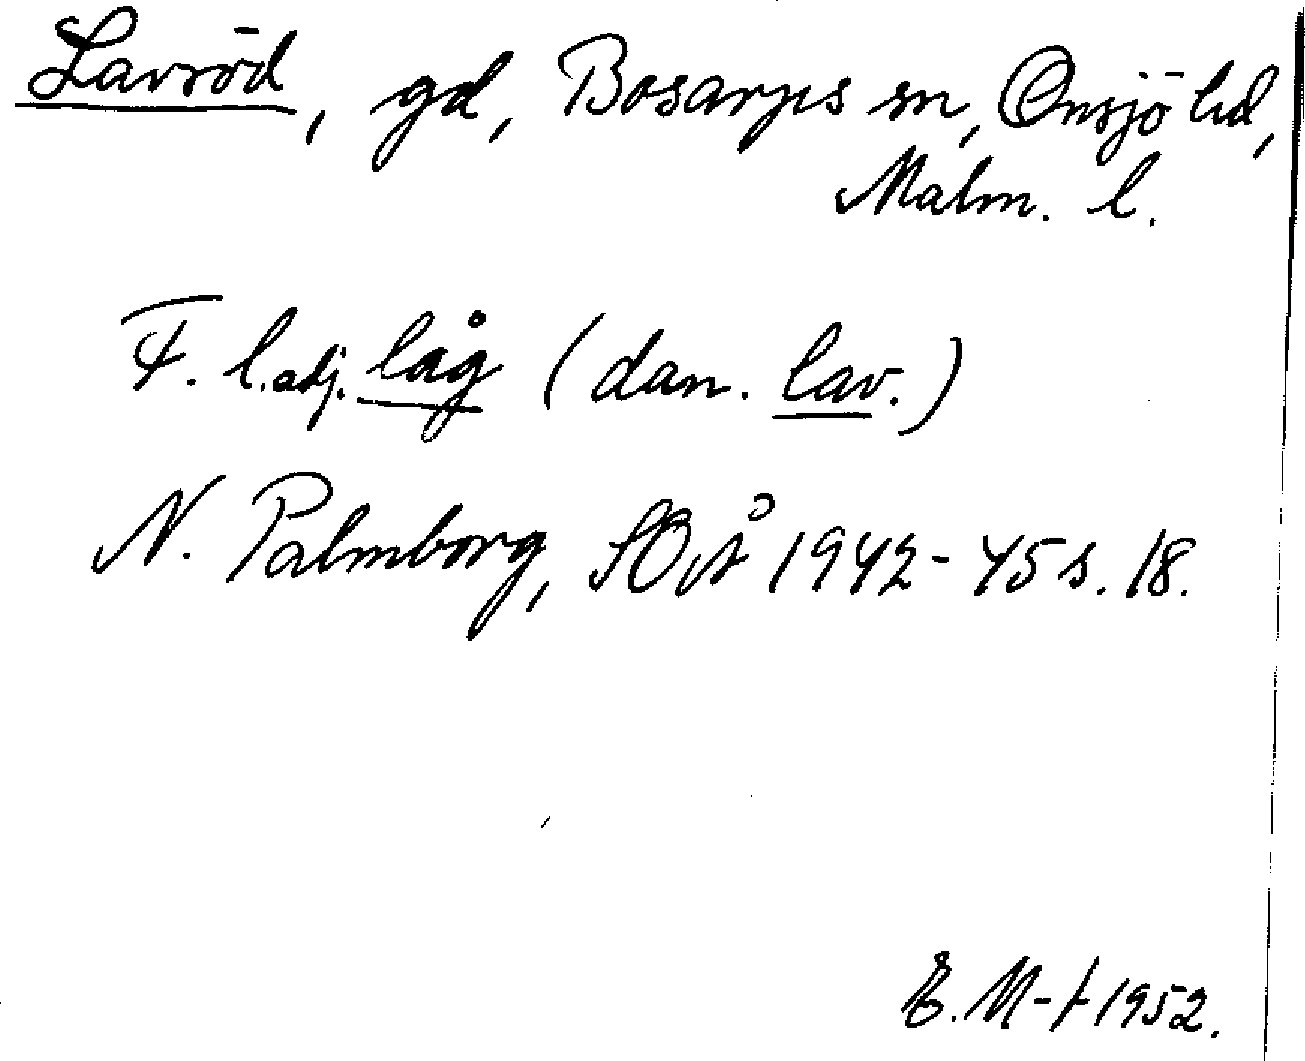 Lavröd, gd, Bosarps sn, Onsjö hd,
Malm. l.
F. l. adj. låg (dan. lav.)
N. Palmborg, SOÅ 1942-45 s. 18.
E. M-t 1952.